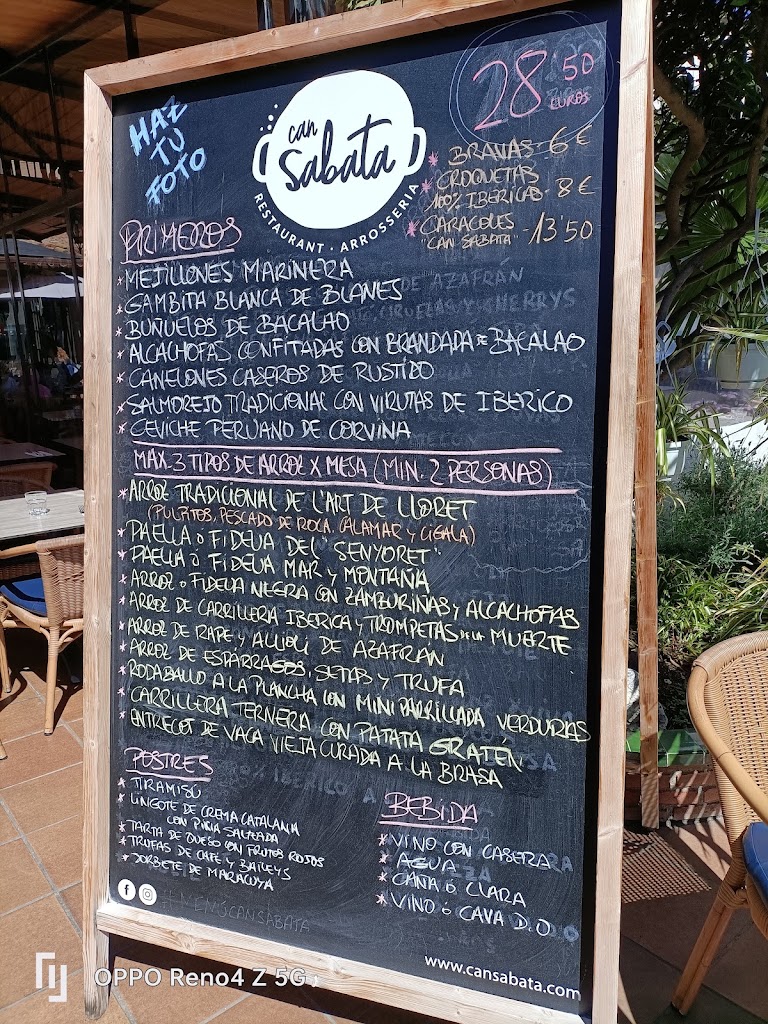 HAZ
TU
FOTO
can
Sabata
RESTAURANT · ARROSSERIA
28'50
EUROS
* BRAVAS 6€
* CROQUETAS
100% IBERICAS - 8€
* CARACOLES
"CAN SABATA" - 13'50
PRIMEROS
* MEJILLONES MARINERA
* GAMBITA BLANCA DE BLANES
* BUÑUELOS DE BACALAO
* ALCACHOFAS CONFITADAS CON BRANDADA DE BACALAO
* CANELONES CASEROS DE RUSTIDO
* SALMOREJO TRADICIONAL CON VIRUTAS DE IBERICO
* CEVICHE PERUANO DE CORVINA
MAX. 3 TIPOS DE ARROZ X MESA (MIN. 2 PERSONAS)
* ARROZ TRADICIONAL DE L'ART DE LLORET
(PULPITOS, PESCADO DE ROCA, CALAMAR Y CIGALA)
* PAELLA O FIDEUA DEL "SENYORET"
* PAELLA O FIDEUA MAR Y MONTAÑA
* ARROZ O FIDEUA NEGRA CON ZAMBURIÑAS Y ALCACHOFAS
* ARROZ DE CARRILLERA IBERICA Y TROMPETAS DE LA MUERTE
* ARROZ DE RAPE Y ALLIOLI DE AZAFRAN
* ARROZ DE ESPARRAGOS, SETAS Y TRUFA
* RODABALLO A LA PLANCHA CON MINI PARRILLADA VERDURAS
* CARRILLERA TERNERA CON PATATA GRATEN
* ENTRECOT DE VACA VIEJA CURADA A LA BRASA
POSTRES
* TIRAMISÚ
* LINGOTE DE CREMA CATALANA
CON PIÑA SALTEADA
* TARTA DE QUESO CON FRUTOS ROJOS
* TRUFAS DE CAFE Y BAILEYS
* SORBETE DE MARACUYA
BEBIDA
* VINO CON CASERA
* AGUA
* CAÑA O CLARA
* VINO O CAVA D.O
#MENUSCANSABATA
www.cansabata.com
OPPO Reno4 Z 5G